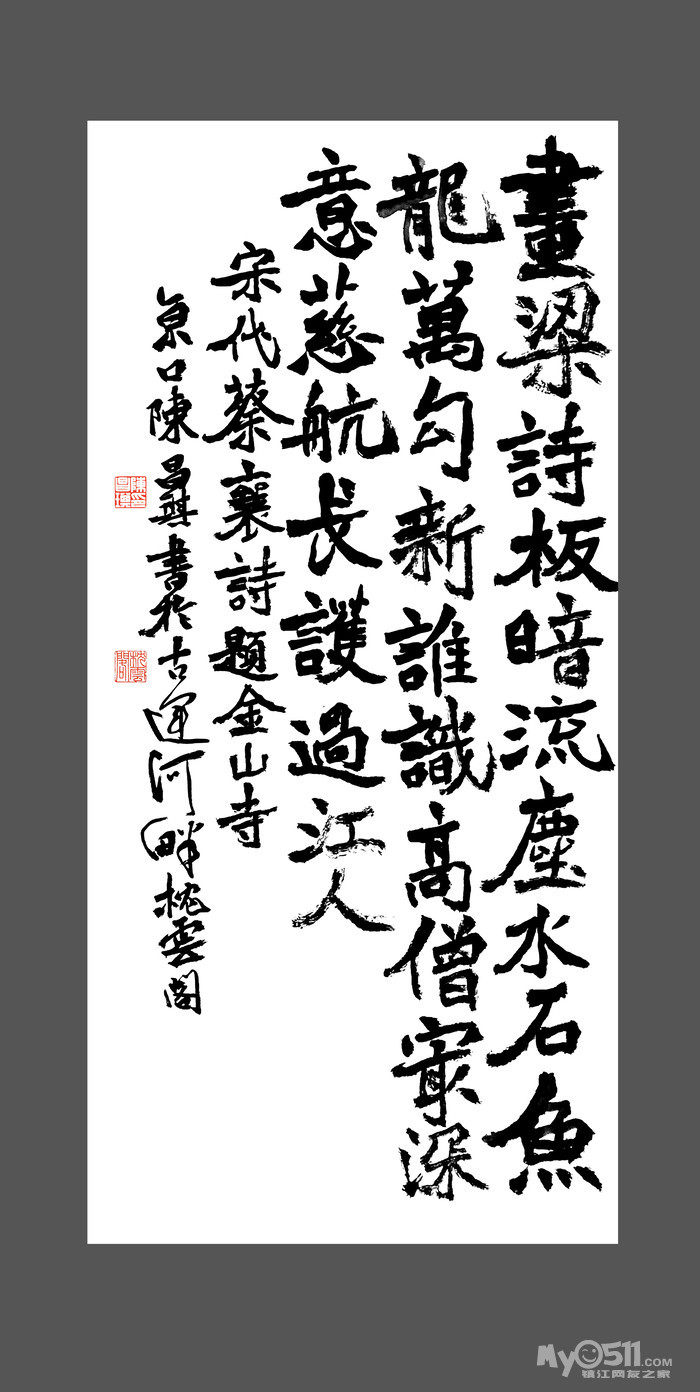 畫梁詩板暗流塵水石魚
龍萬勾新誰識高僧㝡深
意慈航長護過江人
宋代蔡襄詩題金山寺
京口陳昌書於古運河畔枕雲閣
枕雲閣
My0511.COM
镇江网友之家